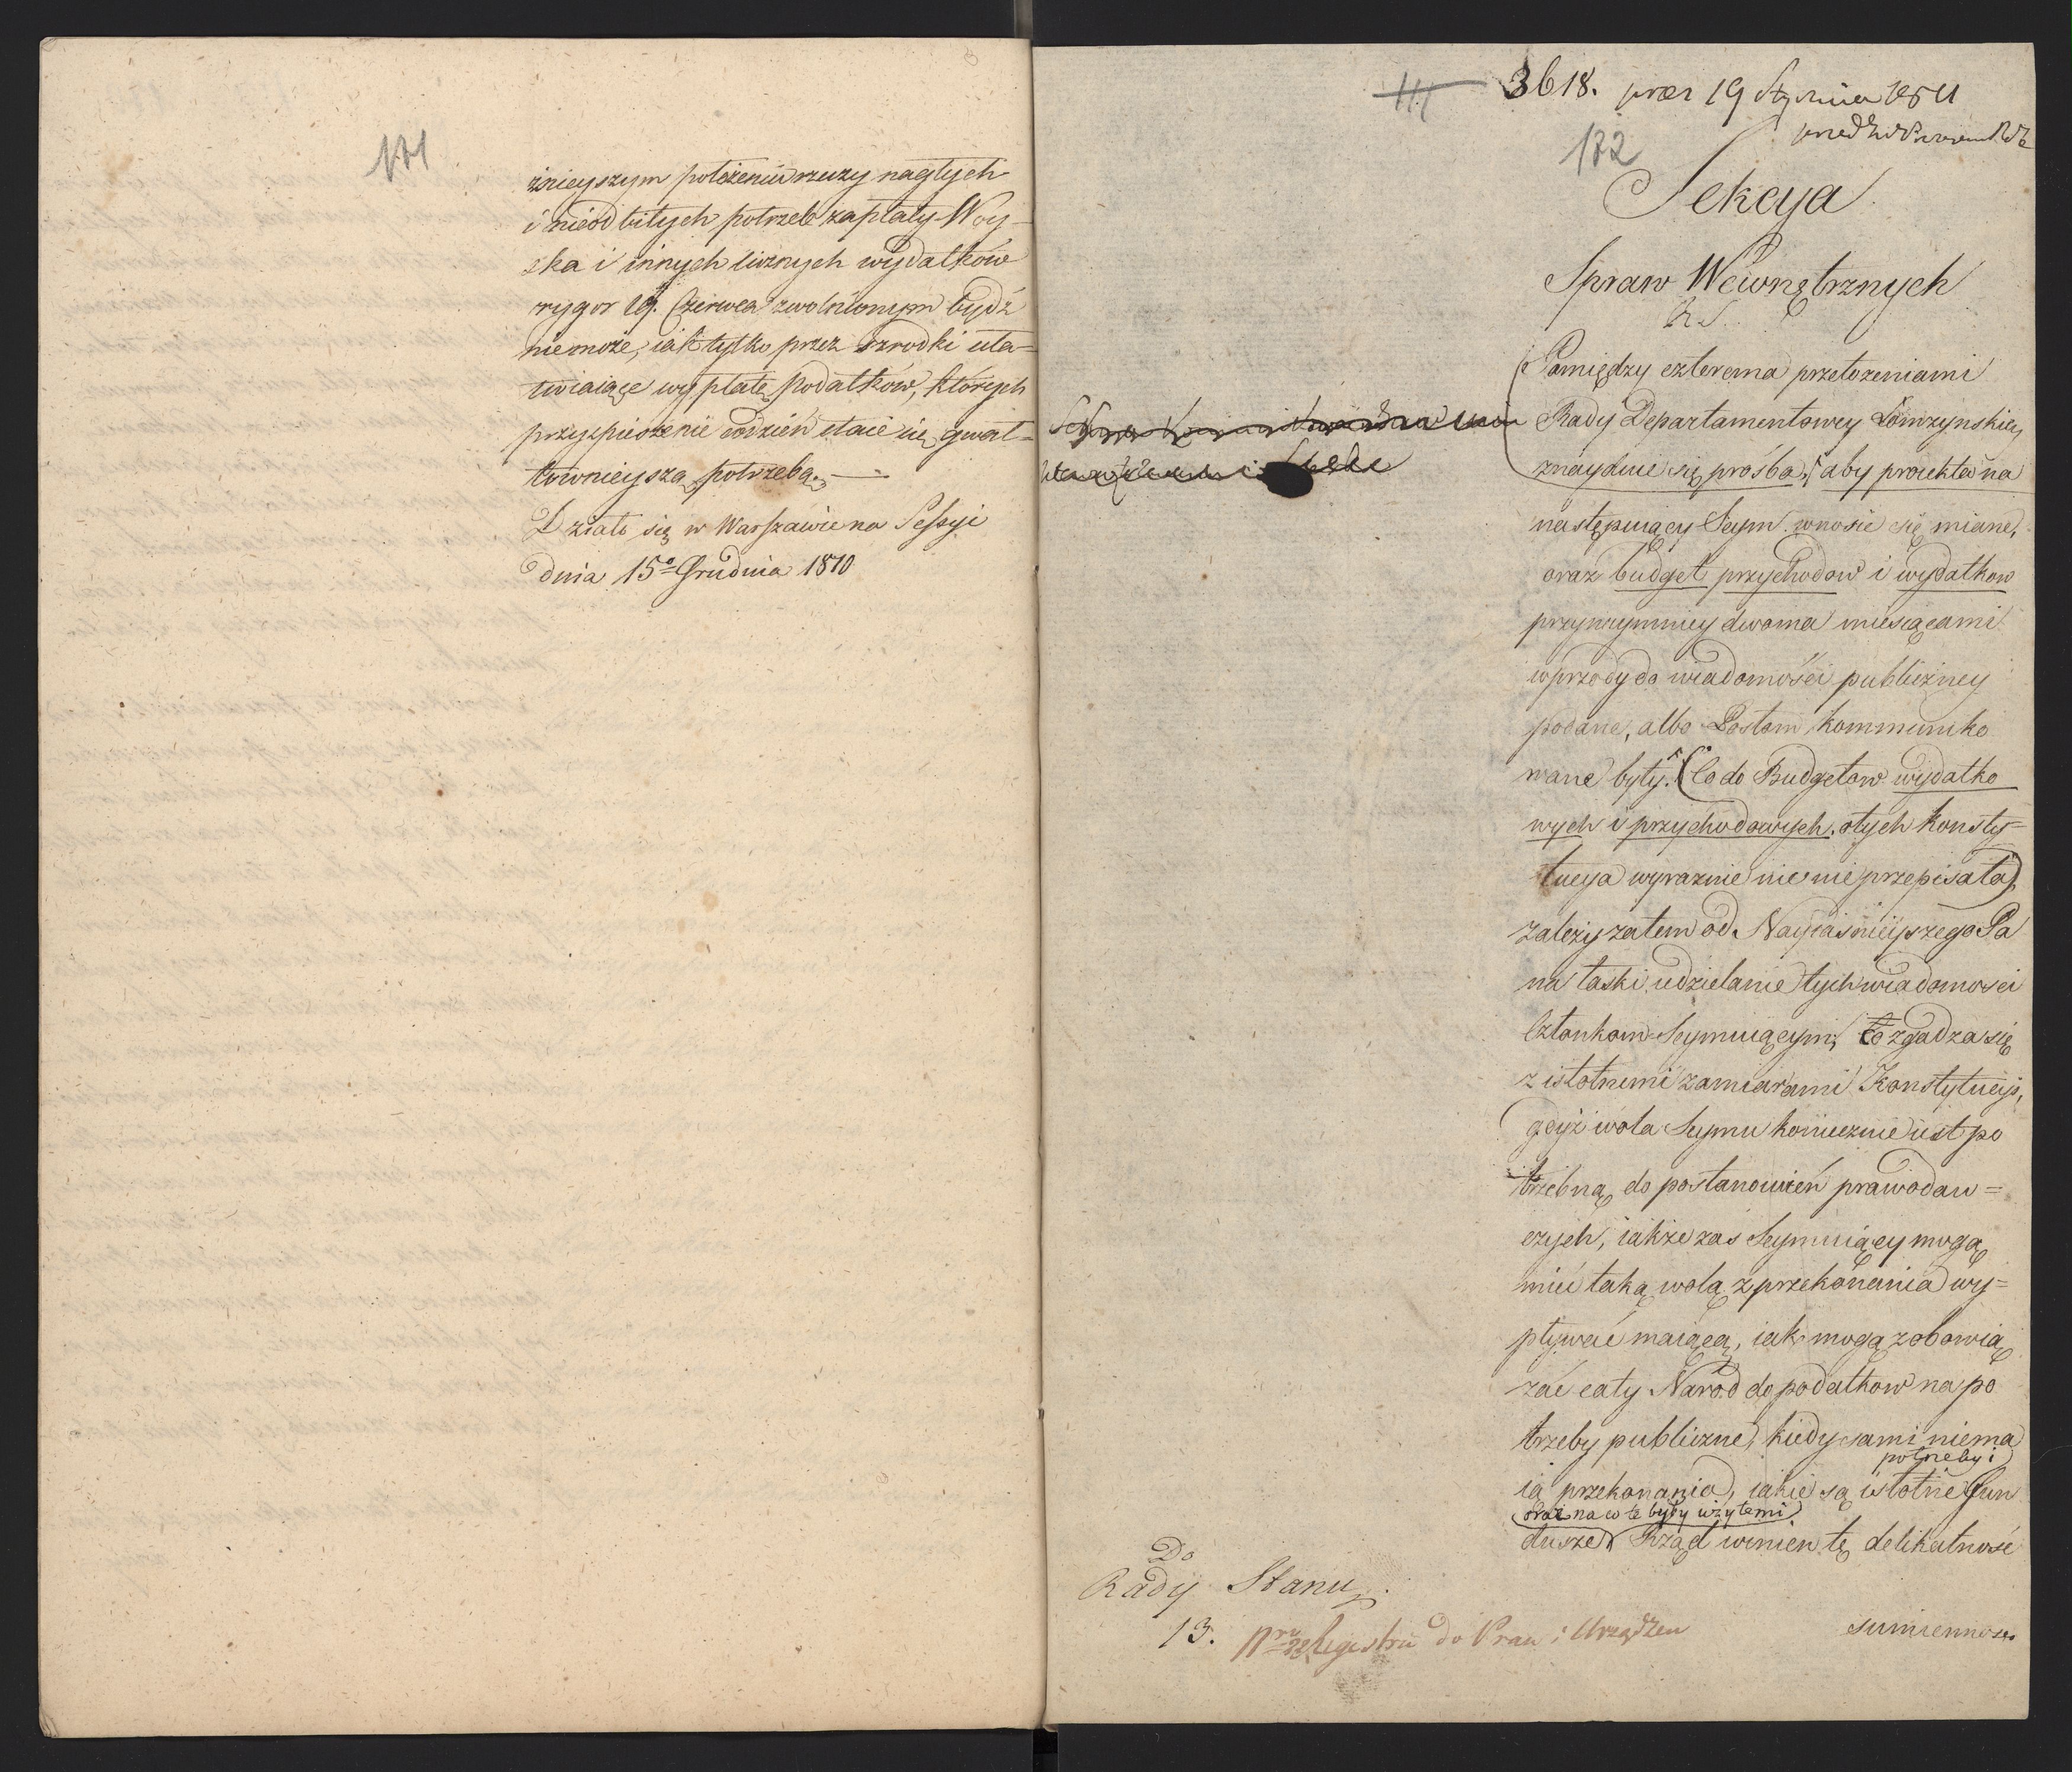 171
źnieyszym położeniu rzeczy nagłych
i nieodbitych potrzeb zapłaty Woy-
ska i innych licznych wydatków
rygor 19. Czerwca zwolnionym bydź
niemoże, iak tylko przez szrodki uła-
twiaiące wypłatę podatków, których
przyspieszenie codzień staie się gwał-
townieyszą potrzebą. —
Działo się w Warszawie na Sessyi
dnia 15º Grudnia 1810
3618. præs 19 Stycznia 1811
172
Sekcya
Spraw Wewnętrznych
R. S.
Pomiędzy czterema przełożeniami
Rady Departamentowey Łomzynskiey
znayduie się prośba, aby proiekta na
następuiący Seym wnosić się miane,
oraz budget przychodow i wydatkow
przynaymniey dwoma miesiącami
wprzody do wiadomości publiczney
podane, albo Posłom kommuniko
wane były. Co do Budgetow wydatko
wych i przychodowych, o tych Konsty=
tucya wyraznie nic nie przepisała,
zależy zatem od Nayiaśnieyszego Pa
na łaski udzielanie tych wiadomości
Członkom Seymuiącym, to zgadza się
z istotnemi zamiarami Konstytucyi,
gdyż wola Seymu koniecznie iest po
trzebną do postanowień prawodaw=
czych, iakże zas Seymuiący mogą
mieć taką wolą z przekonania wy=
pływać maiącą, iak mogą zobowią
zać cały Narod do podatkow na po
trzeby publiczne, kiedy sami niema
potrzeby i
ią przekonania, iakie są istotne fun
oraz na co te były użytemi
dusze. Rząd winien tę delikatność
Do
Rady Stanu
sumiennoś
13. Registru do Praw i Urządzen